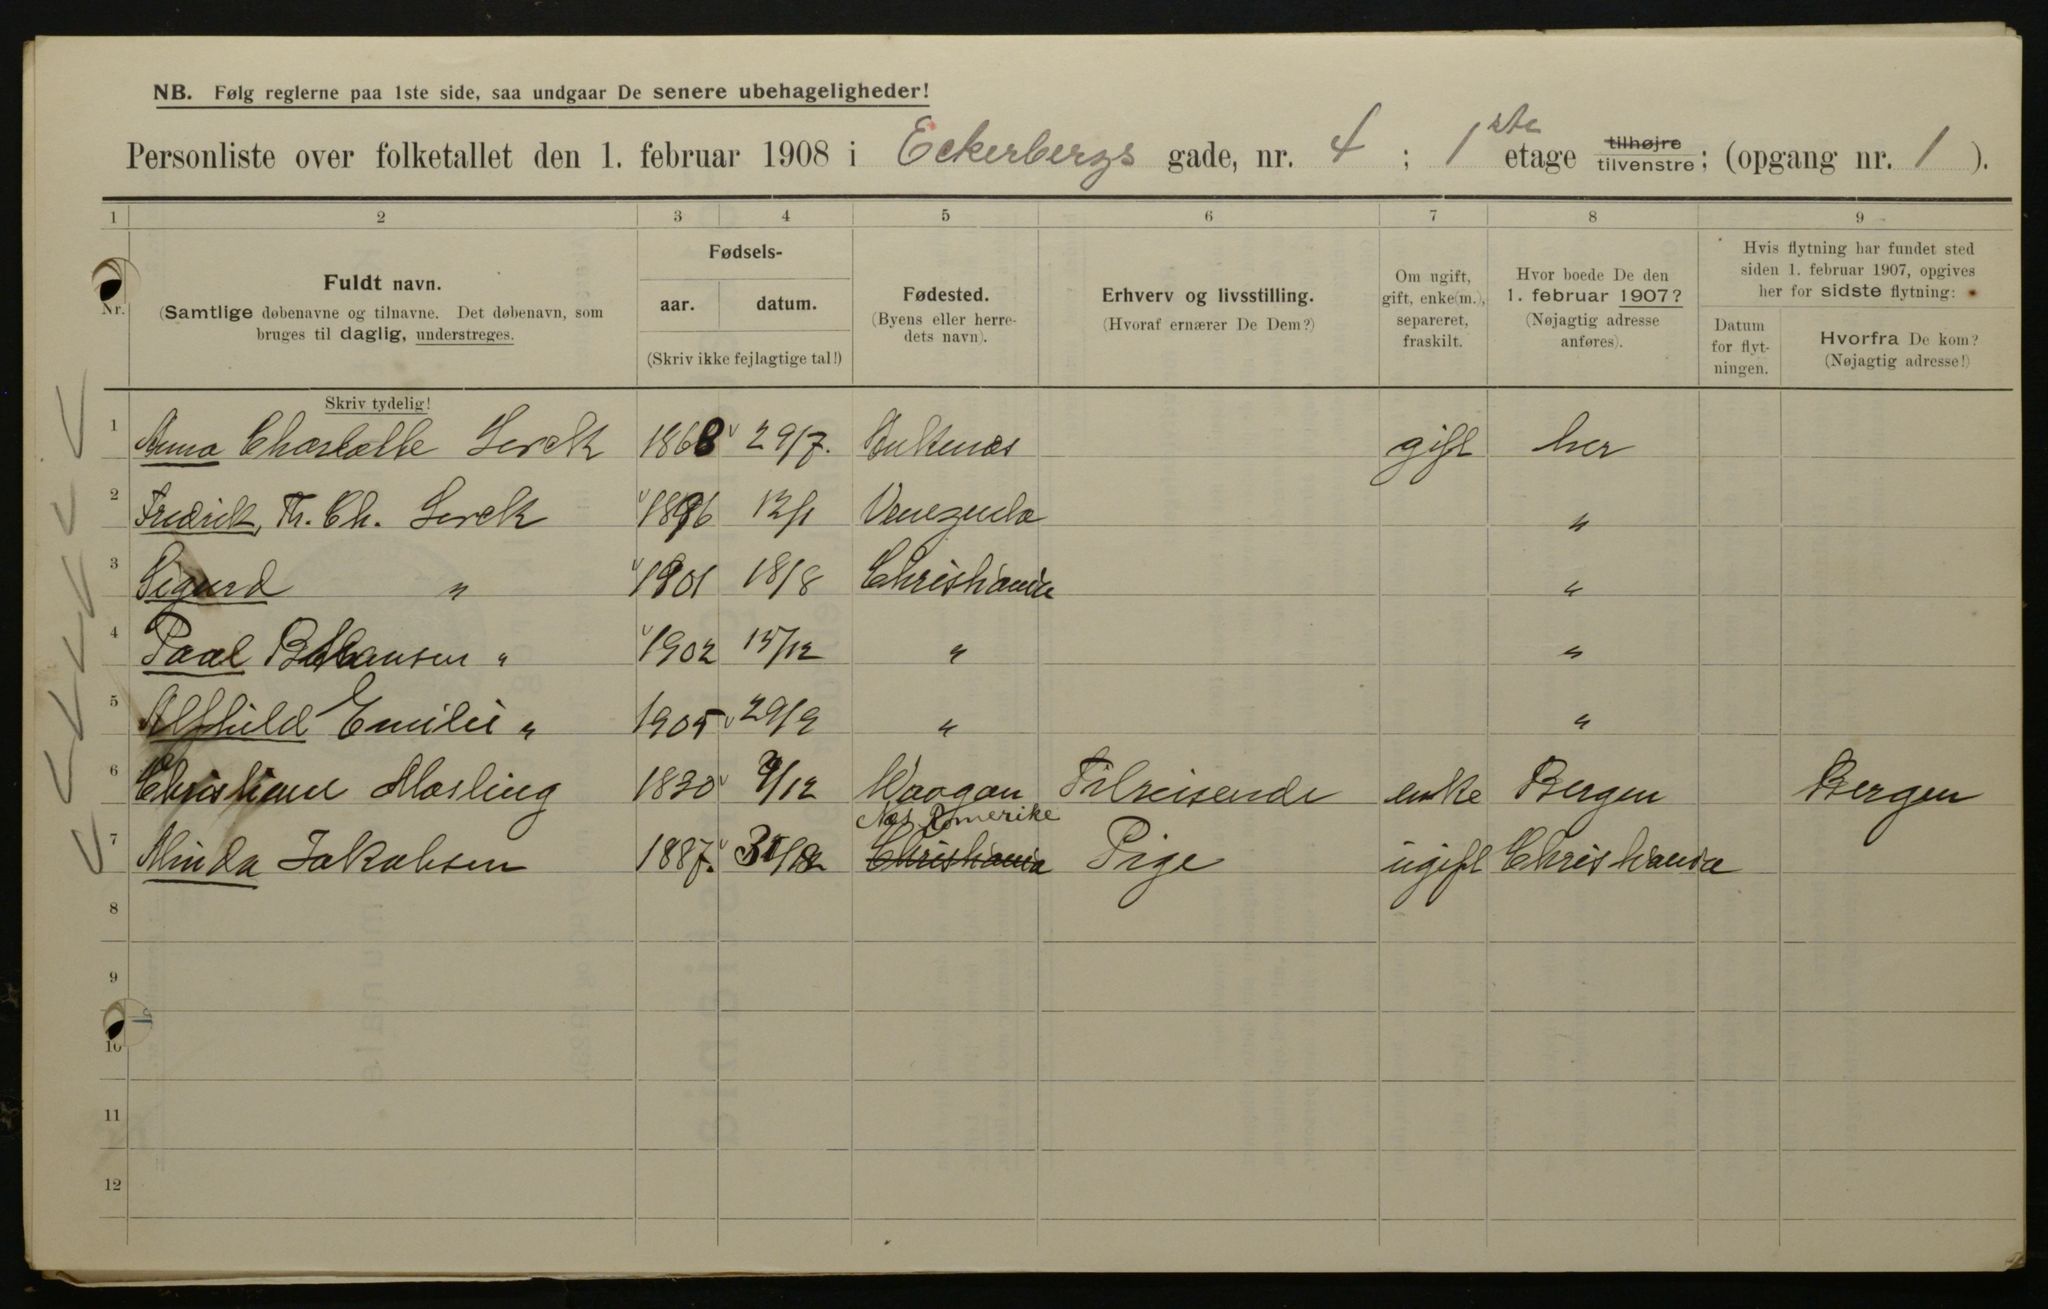 NB. Følg reglerne paa 1ste side, saa undgaar De senere ubehageligheder!
Personliste over folketallet den 1. februar 1908 i Eckerbergs gade, nr. 4; 1ste etage tilhøjre tilvenstre; (opgang nr. 1).
1 2 3 4 5 6 7 8 9
Nr.
Fuldt navn.
(Samtlige døbenavne og tilnavne. Det døbenavn, som
bruges til daglig, understreges.
Skriv tydelig!
Fødsels-
aar. datum.
(Skriv ikke fejlagtige tal!)
Fødested.
(Byens eller herre-
dets navn).
Erhverv og livsstilling.
(Hvoraf ernærer De Dem?)
Om ugift,
gift, enke(m.),
separeret,
fraskilt.
Hvor boede De den
1. februar 1907?
(Nøjagtig adresse
anføres).
Hvis flytning har fundet sted
siden 1. februar 1907, opgives
her for sidste flytning:
Datum
for flyt-
ningen.
Hvorfra De kom?
(Nøjagtig adresse!)
1 Anna Charlotte Lerck 1868 29/7. gift her
2 Fredrik, Th. Ch. Lerck 1896 12/1 Venezuela "
3 Sigurd " 1901 18/8 Christiania "
4 Paal Hansen " 1902 15/12 " "
5 Alfhild Emilie " 1905 29/9 " "
6 Christiane Masling 1830 9/12 Waagan Tilreisende enke Bergen Bergen
Nes Romerike
7 Minda Jakobsen 1887. /12 Christiania Pige ugift Christiania
8
9
10
11
12